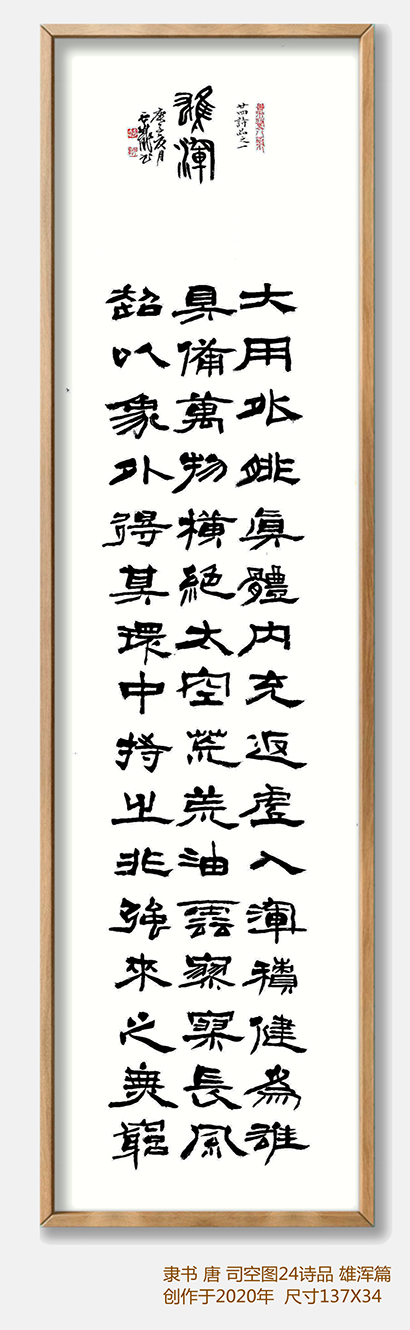 廿四詩品之一
雄渾
庚子夏月
大用外腓眞體内充返虛入渾積健為雄
具備萬物橫絕太空荒荒油雲寥寥長風
超以象外得其環中持之非強來之無窮
隶书 唐 司空图24诗品 雄浑篇
创作于2020年 尺寸137X34